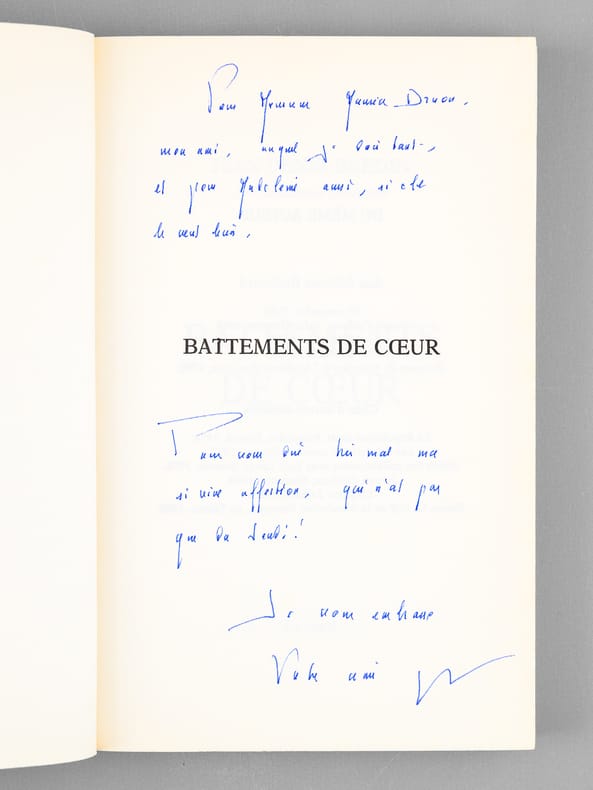 Pour Monsieur Maurice Druon,
mon ami, auquel je dois tant,
et pour Madeleine aussi, si elle
le veut bien,
BATTEMENTS DE CŒUR
Pour vous dire très mal ma
si vive affection, qui n'est pas
que du Jeudi!
Je vous embrasse
Votre ami